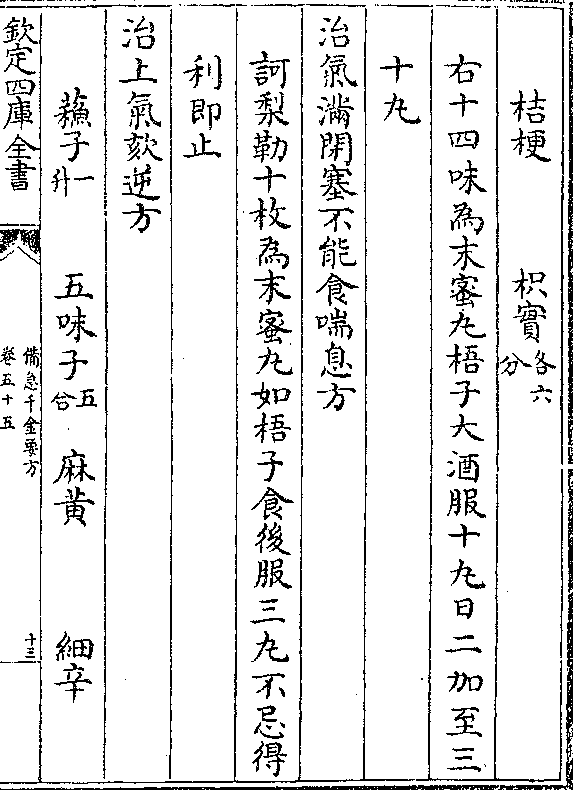 桔梗 枳實各六分
右十四味為末蜜丸梧子大酒服十丸日二加至三
十丸
治氣滿閉塞不能食喘息方
訶梨勒十枚為末蜜丸如梧子食後服三丸不忌得
利即止
治上氣欬逆方
蘓子一升 五味子五合 麻黄 細辛
欽定四庫全書
備急千金要方
卷五十五
十三